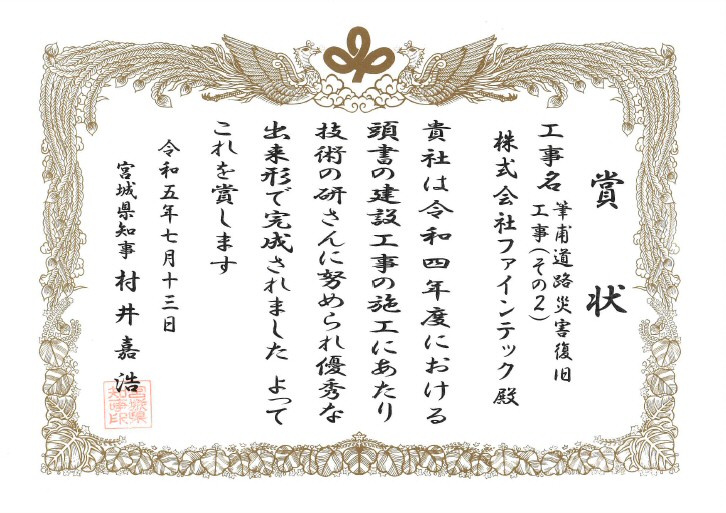 賞状
工事名 筆甫道路災害復旧
工事(その2)
株式会社ファインテック殿
貴社は令和四年度における
頭書の建設工事の施工にあたり
技術の研さんに努められ優秀な
出来形で完成されました よって
これを賞します
令和五年七月十三日
宮城県知事 村井嘉浩
宮城県
知事印